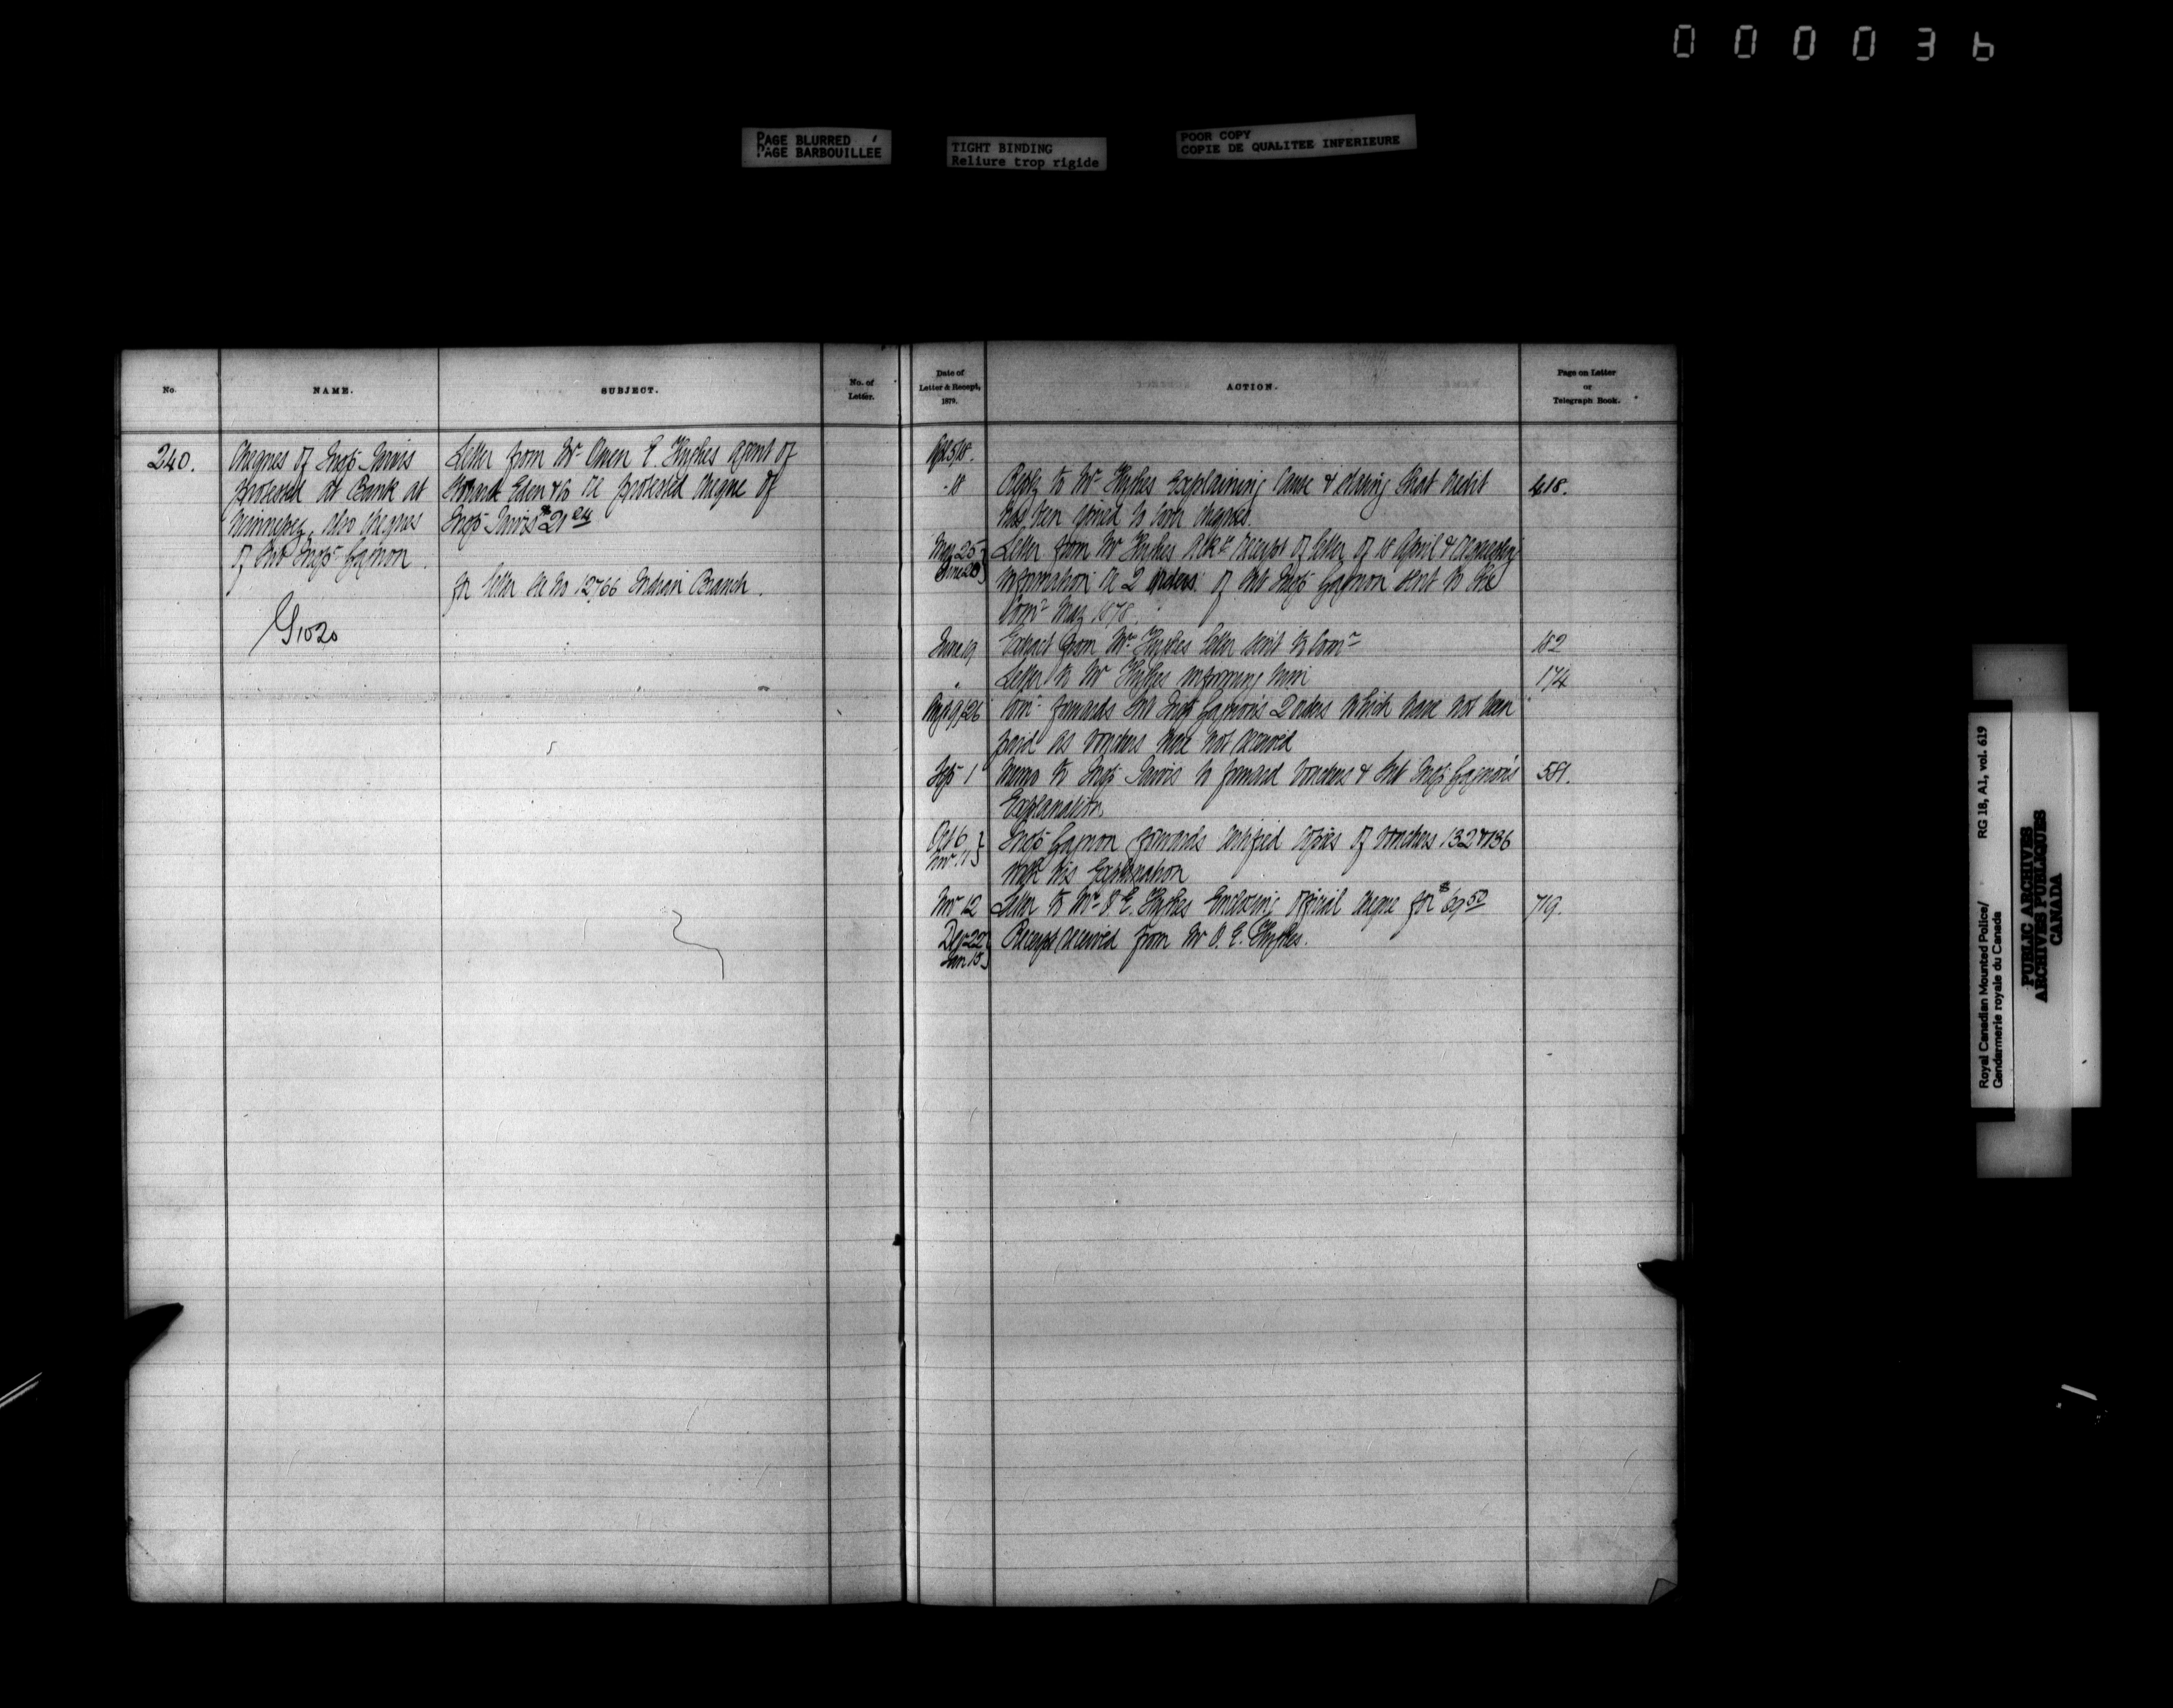 000036
PAGE BLURRED
PAGE BARBOUILLEE
TIGHT BINDING
Reliure trop rigide
POOR COPY
COPIE DE QUALITEE INFERIEURE
No.
NAME.
SUBJECT.
No. of
Letter.
Date of
Letter & Receipt,
1879.
ACTION.
Page on Letter
or
Telegraph Book.
240.
Cheques of Insp Jarvis
protested at Bank at
Winnepeg, also cheques
of Sub Insp Gagnon.
G1020
Letter from Mr Owen E. Hughes agent of
Eden & Co re protested cheque of
Insp Jarvis $21 24
for letter see No 12766 Indian Branch.
Apl 5/18.
" 18 Reply to Mr Hughes Explaining Cause & stating that credit 418.
has been to cover cheques.
May 25 Letter from Mr Hughes receipt of letter of 18 April & requesting
June 20 information re 2 orders of Sub Insp Gagnon sent to the
Comr May 1878.
June 19 Extract from Mr Hughes letter sent to Comr 182
" Letter to Mr Hughes informing him 174
Aug 19/26 Comr forwards Sub Insp Gagnon's 2 orders which have not been
paid as vouchers were not received
Sep 1 Memo to Insp Jarvis to forward vouchers & Sub Insp Gagnon's 581.
Explanation.
Oct 6 Insp Gagnon forwards certified copies of vouchers 132 & 136
Nov. 11 with his Explanation
Nov 12 Letter to Mr O E. Hughes Enclosing official cheque for $69 50 719.
Dec 22 Receipt received from Mr O. E. Hughes.
Jan 15
Royal Canadian Mounted Police/
Gendarmerie royale du Canada
RG 18, A1, vol. 619
PUBLIC ARCHIVES
ARCHIVES PUBLIQUES
CANADA